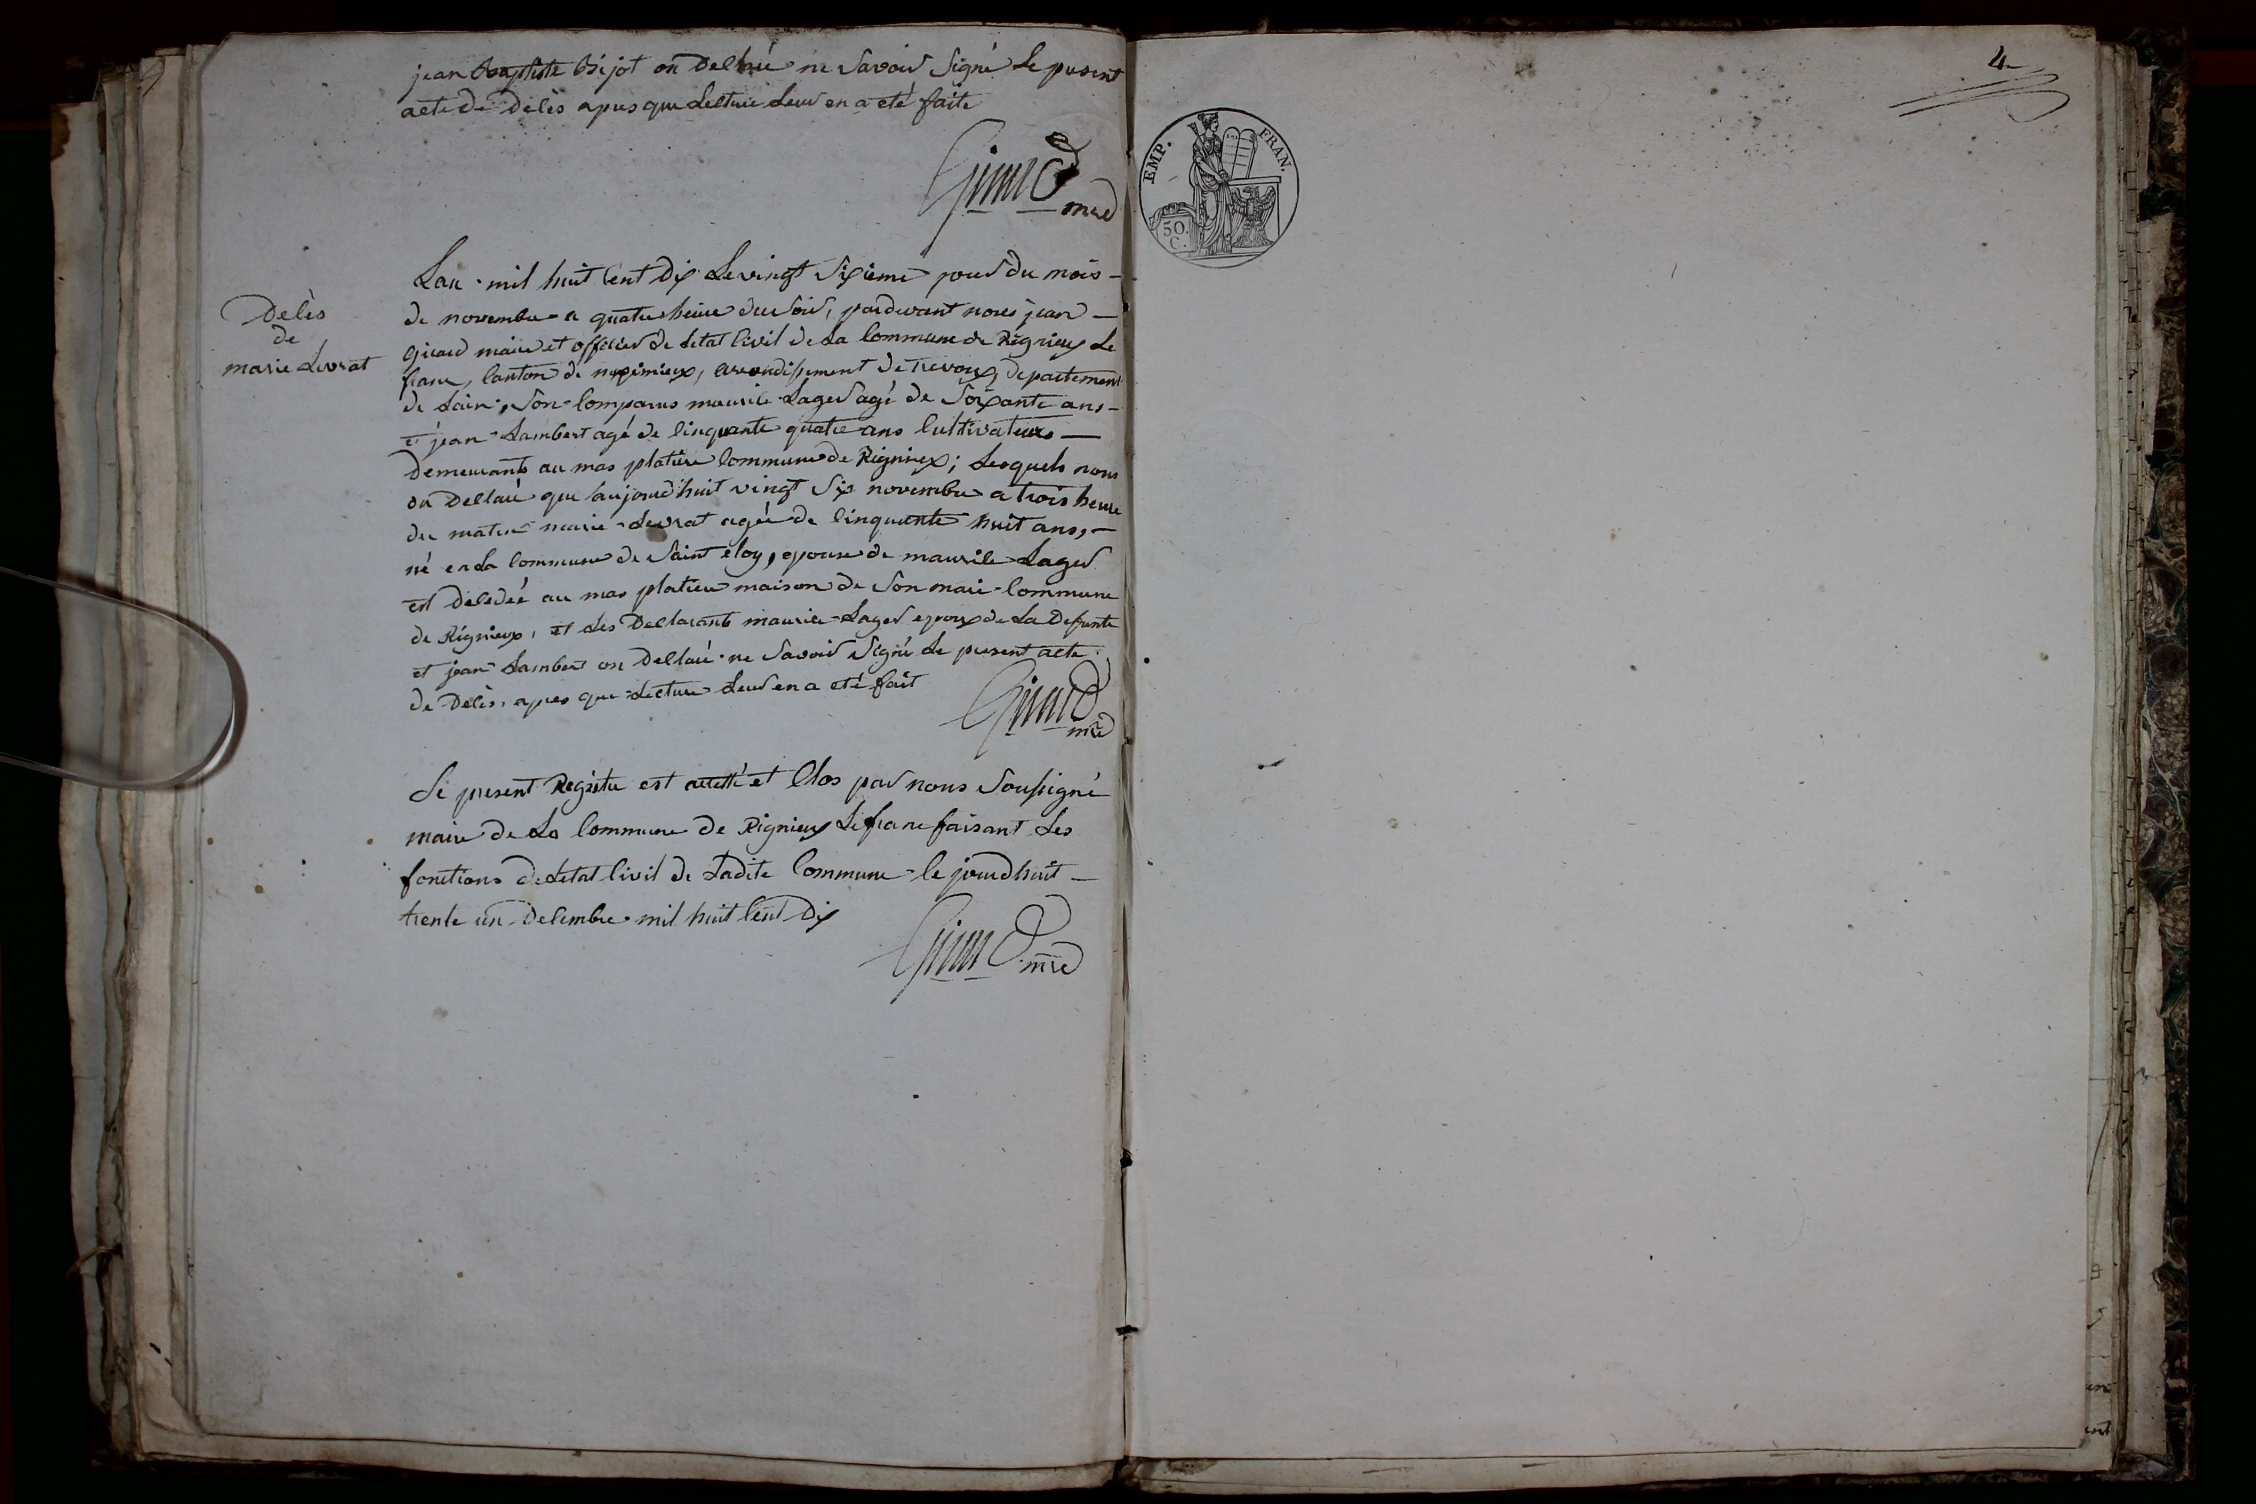 jean Baptiste Bijot on Declaré ne Savoir Signé Le present
acte de Décès apres que Lecture Leur en a été faite
Girard
mre
Décès
de
marie Livrat
Lan mil huit Cent Dix Le vingt Sixieme jour du mois
de novembre a quatre heure du Soir, pardevant nous jean
Girard maire et officier de Letat Civil de La Commune de Rignieux Le
franc, Canton de meximieux, arrondissement de Trevoux, Departement
de Lain, Son Comparus maurice Lager agé de Soixante ans
et jean Lambert agé de Cinquante quatre ans Cultivateurs
Demeurants au mas platiere Commune de Rignieux; Lesquels nous
on Declaré que Laujourdhuit vingt Six novembre a trois heure
du matin marie Livrat agée de Cinquante huit ans,
né en La Commune de Saint éloy, epouse de maurice Lager
est Décédée au mas platiere maison de Son mari Commune
de Rignieux, et Les Declarants maurice Lager epoux de La Defunte
et jean Lambert on Declaré ne Savoir Signé Le present acte
de Décès, apres que Lecture Leur en a eté fait
Girard
mre
Le present Registre est arretté et Clos par nous Soussigné
maire de La Commune de Rignieux Le franc faisant Les
fonctions de Letat Civil de Ladite Commune le jourdhuit
trente un Decembre mil huit Cent Dix
Girard mre
4
EMP. FRAN.
50.
C.